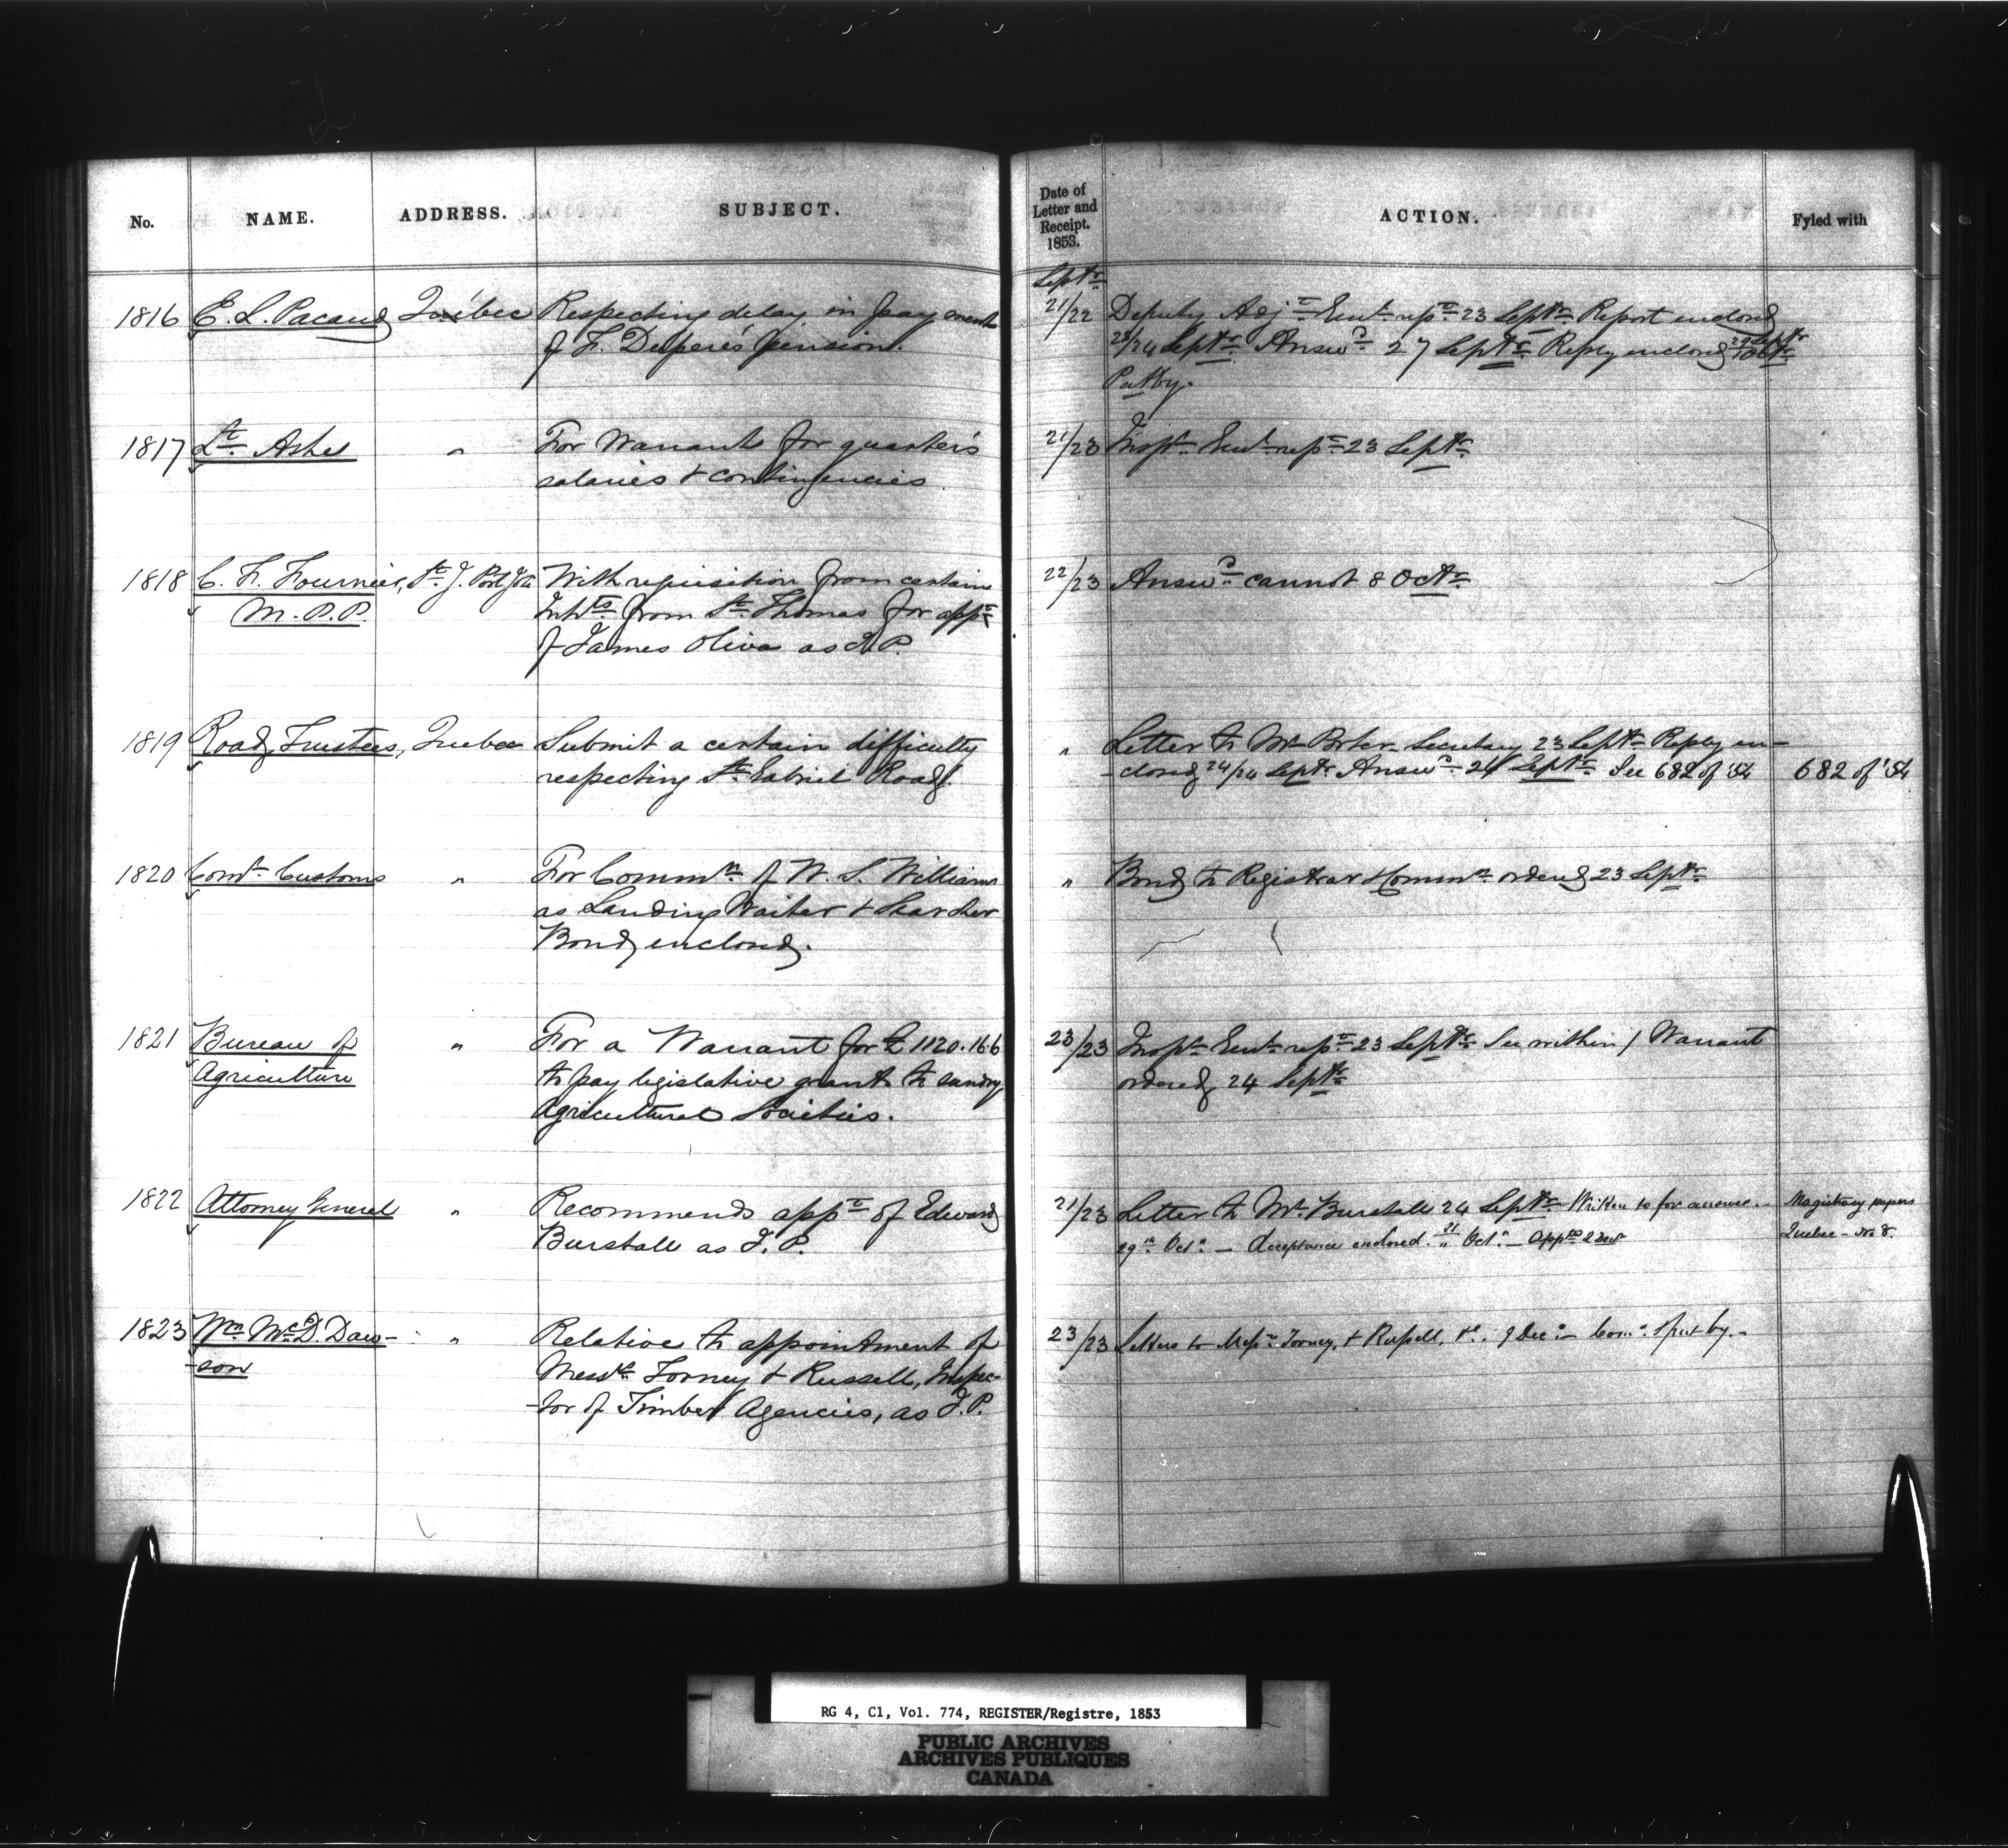 No. NAME. ADDRESS. SUBJECT.
1816 E. L. Pacaud Québec Respecting delay in payment
of F. Dupere's pension.
1817 Lt. Ashe " For Warrants for quarter's
salaries & contingencies
1818 C. F. Fournier, St. J. Port Joli With requisition from certain
M.P.P. Inhts. from St. Thomas for appt.
of James Oliva as J.P.
1819 Road Trustees, Quebec Submit a certain difficulty
respecting St. Gabriel Road.
1820 Comr. Customs " For Commn. of W. S. Williams
as Landing Waiter & Searcher
Bond enclosed.
1821 Bureau of " For a Warrant for £1120.16.6
Agriculture to pay legislative grant to sundry
Agricultural Societies.
1822 Attorney General " Recommends appt. of Edward
Burstall as J.P.
1823 Wm. McD. Daw- " Relative to appointment of
-son Messrs. Torney & Russell, Inspec-
-tor of Timber Agencies, as J.P.
Date of
Letter and
Receipt.
1853.
ACTION. Fyled with
Septr.
21/22 Deputy Adjt. Genl. rept. 23 Septr. Report enclosed
/24 Septr. Answd. 27 Septr. Reply enclosed 29 Septr
Put by.
21/23 Inspr. Genl. rept. 23 Septr.
22/23 Answd. cannot 8 Octr.
" Letter to Mr. Porter Secretary 23 Septr. Reply en-
-closed 24/24 Septr. Answd. 24 Septr. See 682 of '54 682 of '54
" Bond to Registrar & Commn. ordered 23 Septr.
23/23 Inspr. Genl. rept. 23 Septr. See within / Warrant
ordered 24 Septr.
21/23 Letter to Mr. Burstall 24 Septr. Written to for answer Magistracy papers
29th Octr. — Acceptance enclosed 31/" Octr. — Apptd 2 Decr Quebec — No 8.
23/23 Letters to Messrs. Torney, & Russell, 9 Decr. — Comn. & put by. –
RG 4, C1, Vol. 774, REGISTER/Registre, 1853
PUBLIC ARCHIVES
ARCHIVES PUBLIQUES
CANADA